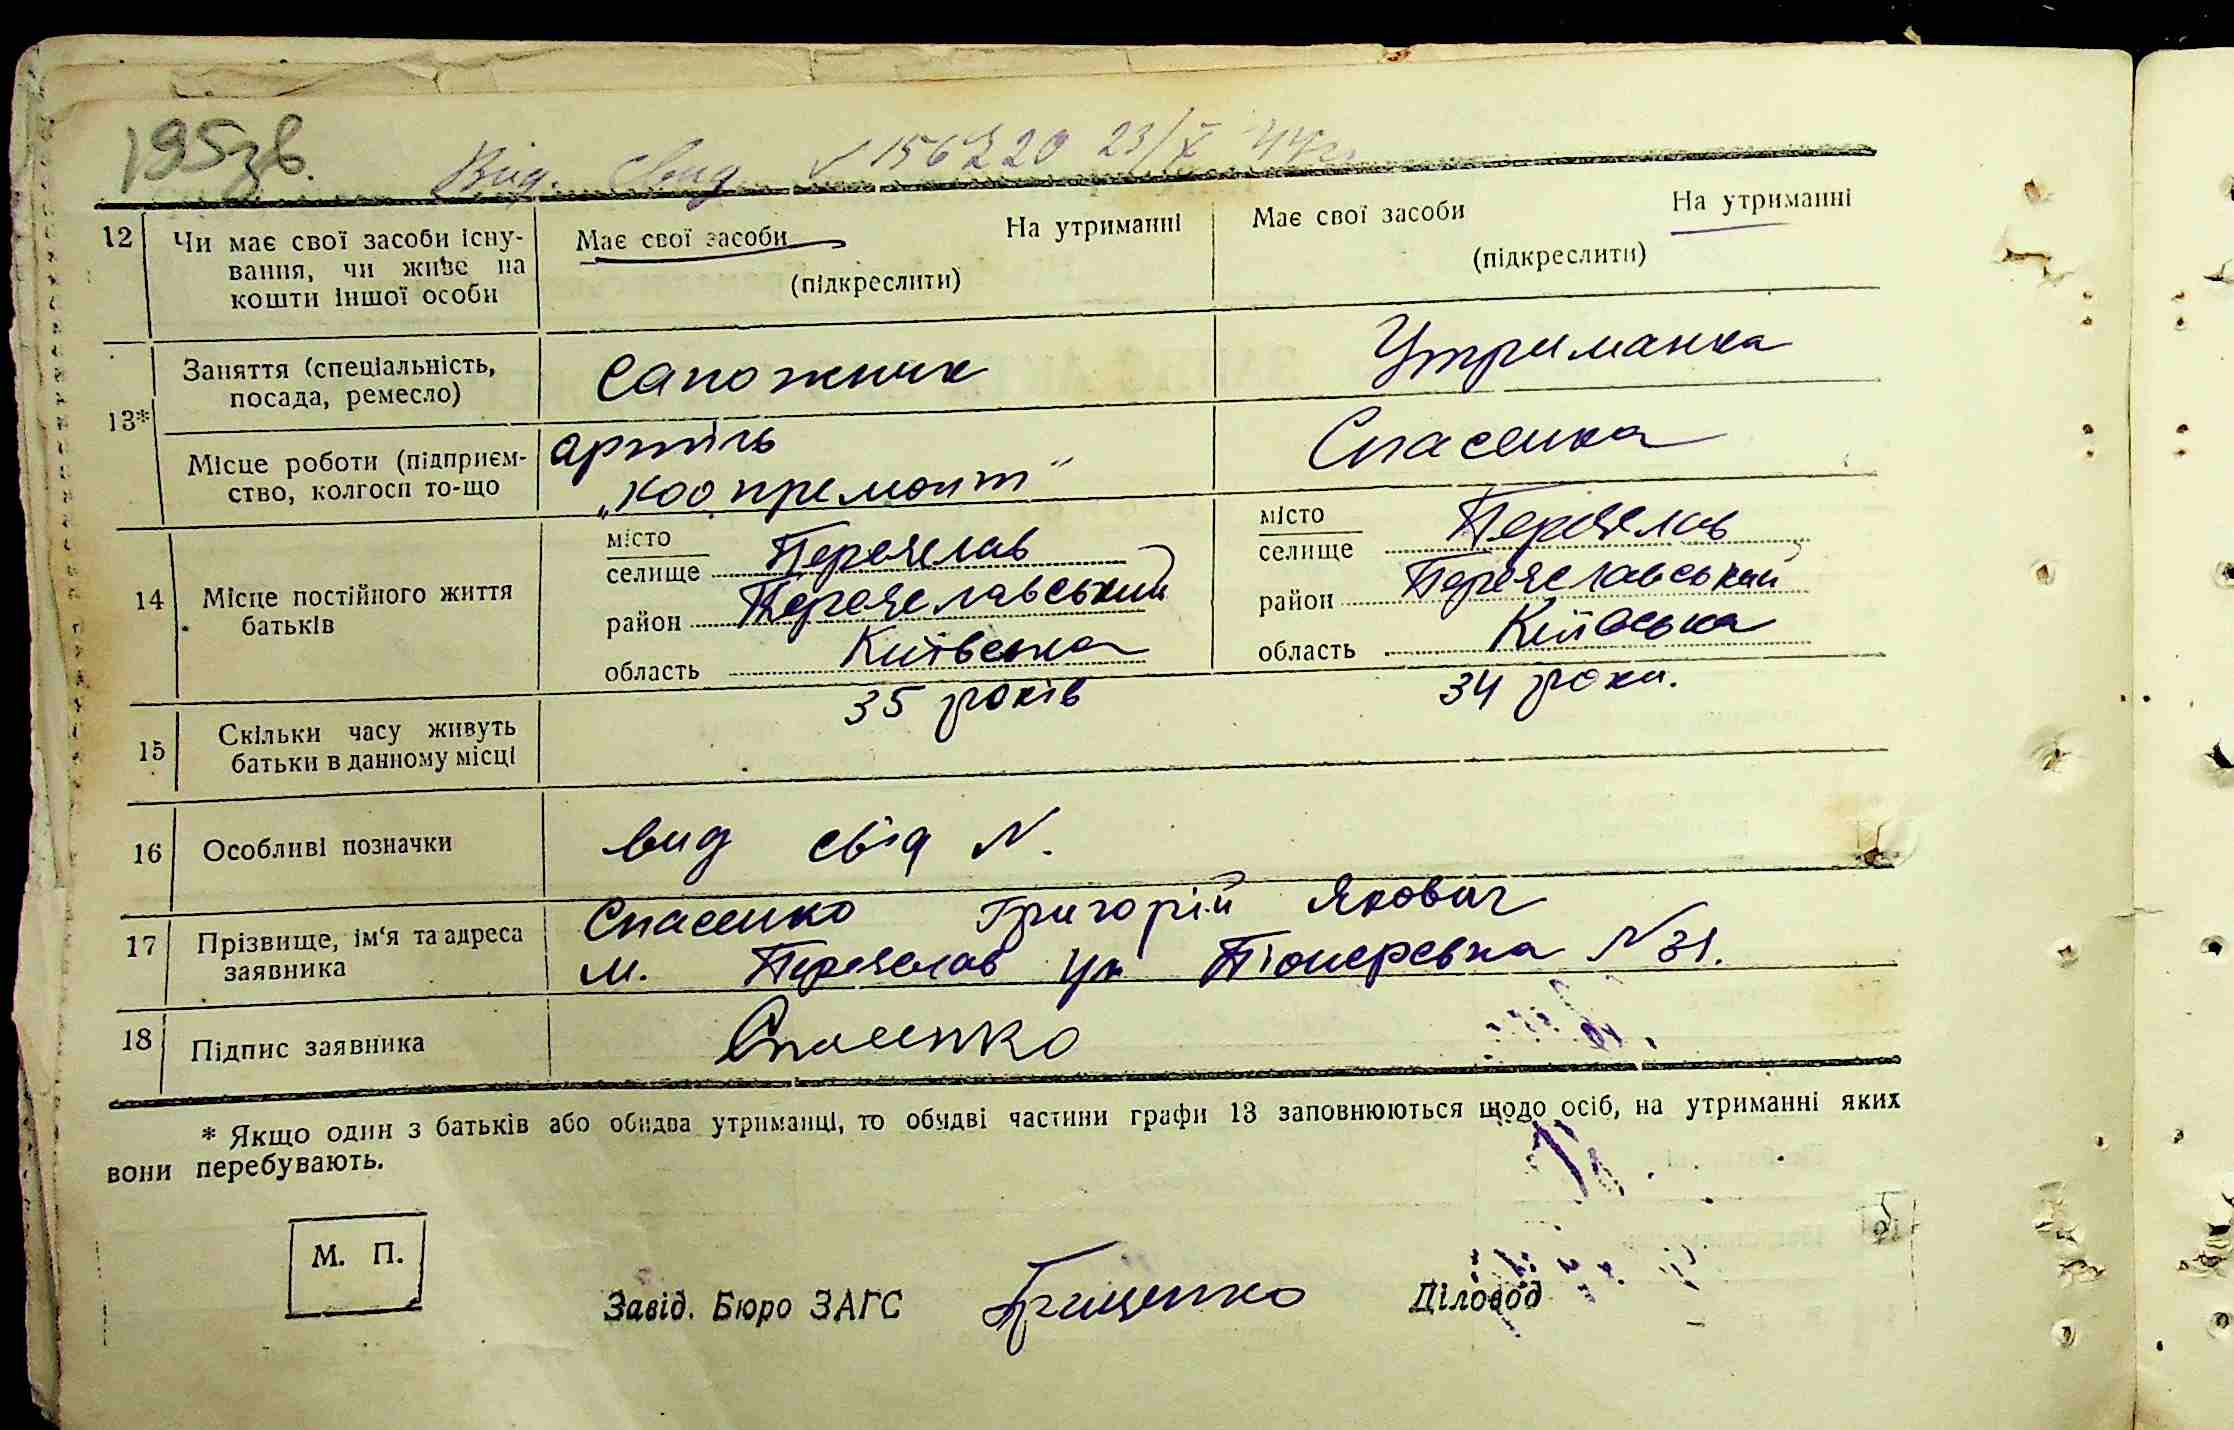 195зв.
Вид. свид. № 156220 23/X 44 г.
12 Чи має свої засоби існу- Має свої засоби На утриманні Має свої засоби На утриманні
вання, чи живе на (підкреслити) (підкреслити)
кошти іншої особи
13* Заняття (спеціальність, сапожник Утриманка
посада, ремесло)
Місце роботи (підприєм- артіль Спасенка
ство, колгосп то-що „коопремонт"
14 Місце постійного життя місто Переяслав місто Переяслав
батьків селище селище
район Переяславський район Переяславський
область Київська область Київська
15 Скільки часу живуть 35 років 34 роки.
батьки в данному місці
16 Особливі позначки вид свід N.
17 Прізвище, ім'я та адреса Спасенко Григорій Якович
заявника м. Переяслав ул Піонерська N 31.
18 Підпис заявника Спасенко
* Якщо один з батьків або обидва утриманці, то обидві частини графи 13 заповнюються щодо осіб, на утриманні яких
вони перебувають.
М. П.
Завід. Бюро ЗАГС Грищенко Діловод